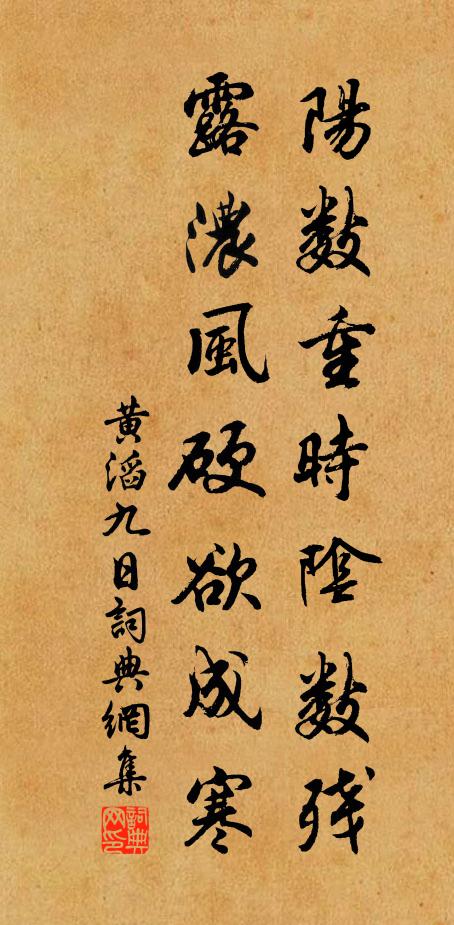 陽數重時陰數殘
露濃風硬欲成寒
黃滔九日詞典網集
詞典网印